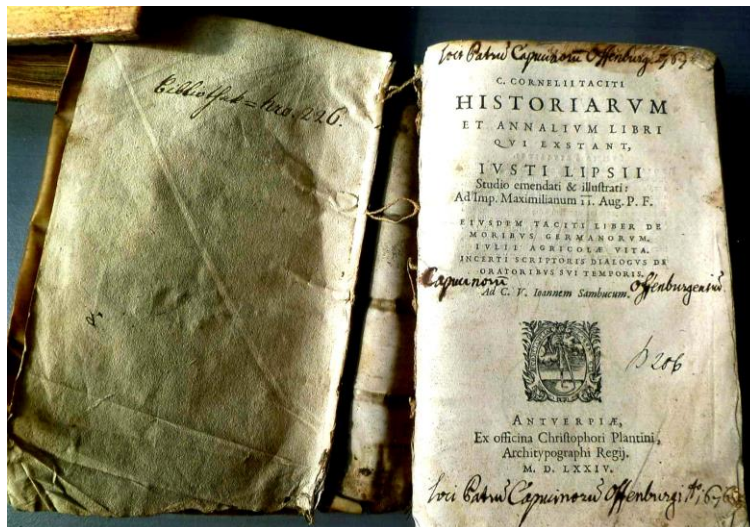 Bibliothek = Nro. 226.
Loci Patrũ Capucinorũ Offenburgi
C. CORNELII TACITI
HISTORIARVM
ET ANNALIVM LIBRI
QVI EXSTANT,
IVSTI LIPSII
Studio emendati & illustrati:
Ad Imp. Maximilianum II. Aug. P. F.
EIVSDEM TACITI LIBER DE
MORIBVS GERMANORVM.
IVLII AGRICOLÆ VITA.
INCERTI SCRIPTORIS DIALOGVS DE
ORATORIBVS SVI TEMPORIS.
Capucinorũ Offenburgensiũ.
Ad C. V. Ioannem Sambucum.
206
ANTVERPIÆ,
Ex officina Christophori Plantini,
Architypographi Regij.
M. D. LXXIV.
Loci Patrũ Capucinorũ Offenburgi